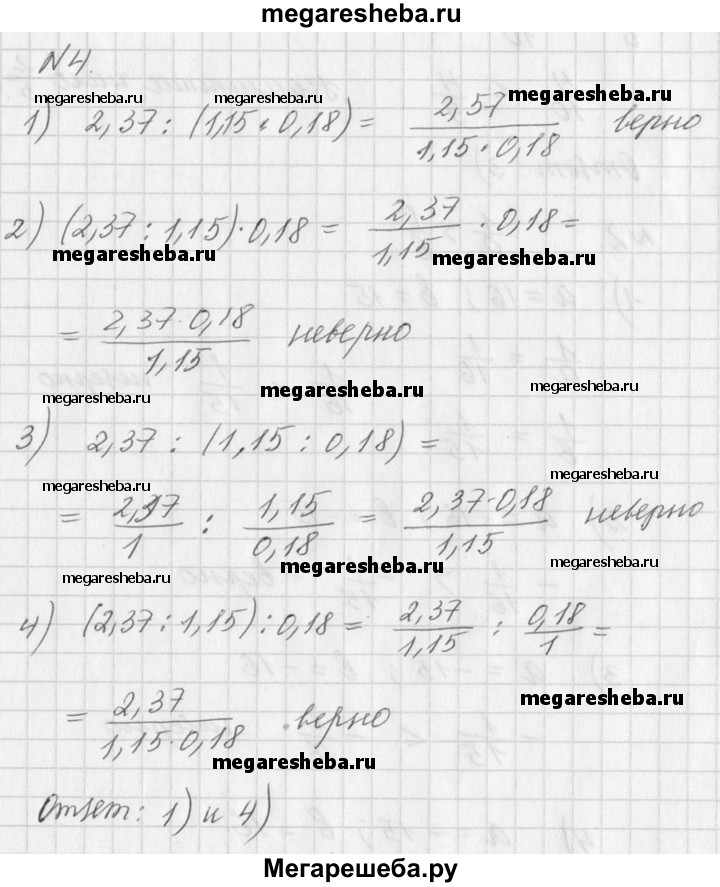 megaresheba.ru
N4
megaresheba.ru megaresheba.ru megaresheba.ru
1) 2,37 : (1,15 · 0,18) = 2,57 / 1,15 · 0,18 верно
2) (2,37 : 1,15) · 0,18 = 2,37 / 1,15 · 0,18 =
megaresheba.ru megaresheba.ru
= 2,37 · 0,18 / 1,15 неверно
megaresheba.ru megaresheba.ru megaresheba.ru
3) 2,37 : (1,15 : 0,18) =
megaresheba.ru megaresheba.ru
= 2,37 / 1 : 1,15 / 0,18 = 2,37 · 0,18 / 1,15 неверно
megaresheba.ru megaresheba.ru megaresheba.ru
4) (2,37 : 1,15) : 0,18 = 2,37 / 1,15 : 0,18 / 1 =
megaresheba.ru
= 2,37 / 1,15 · 0,18 . верно
megaresheba.ru
Ответ: 1) и 4)
Мегарешеба.ру